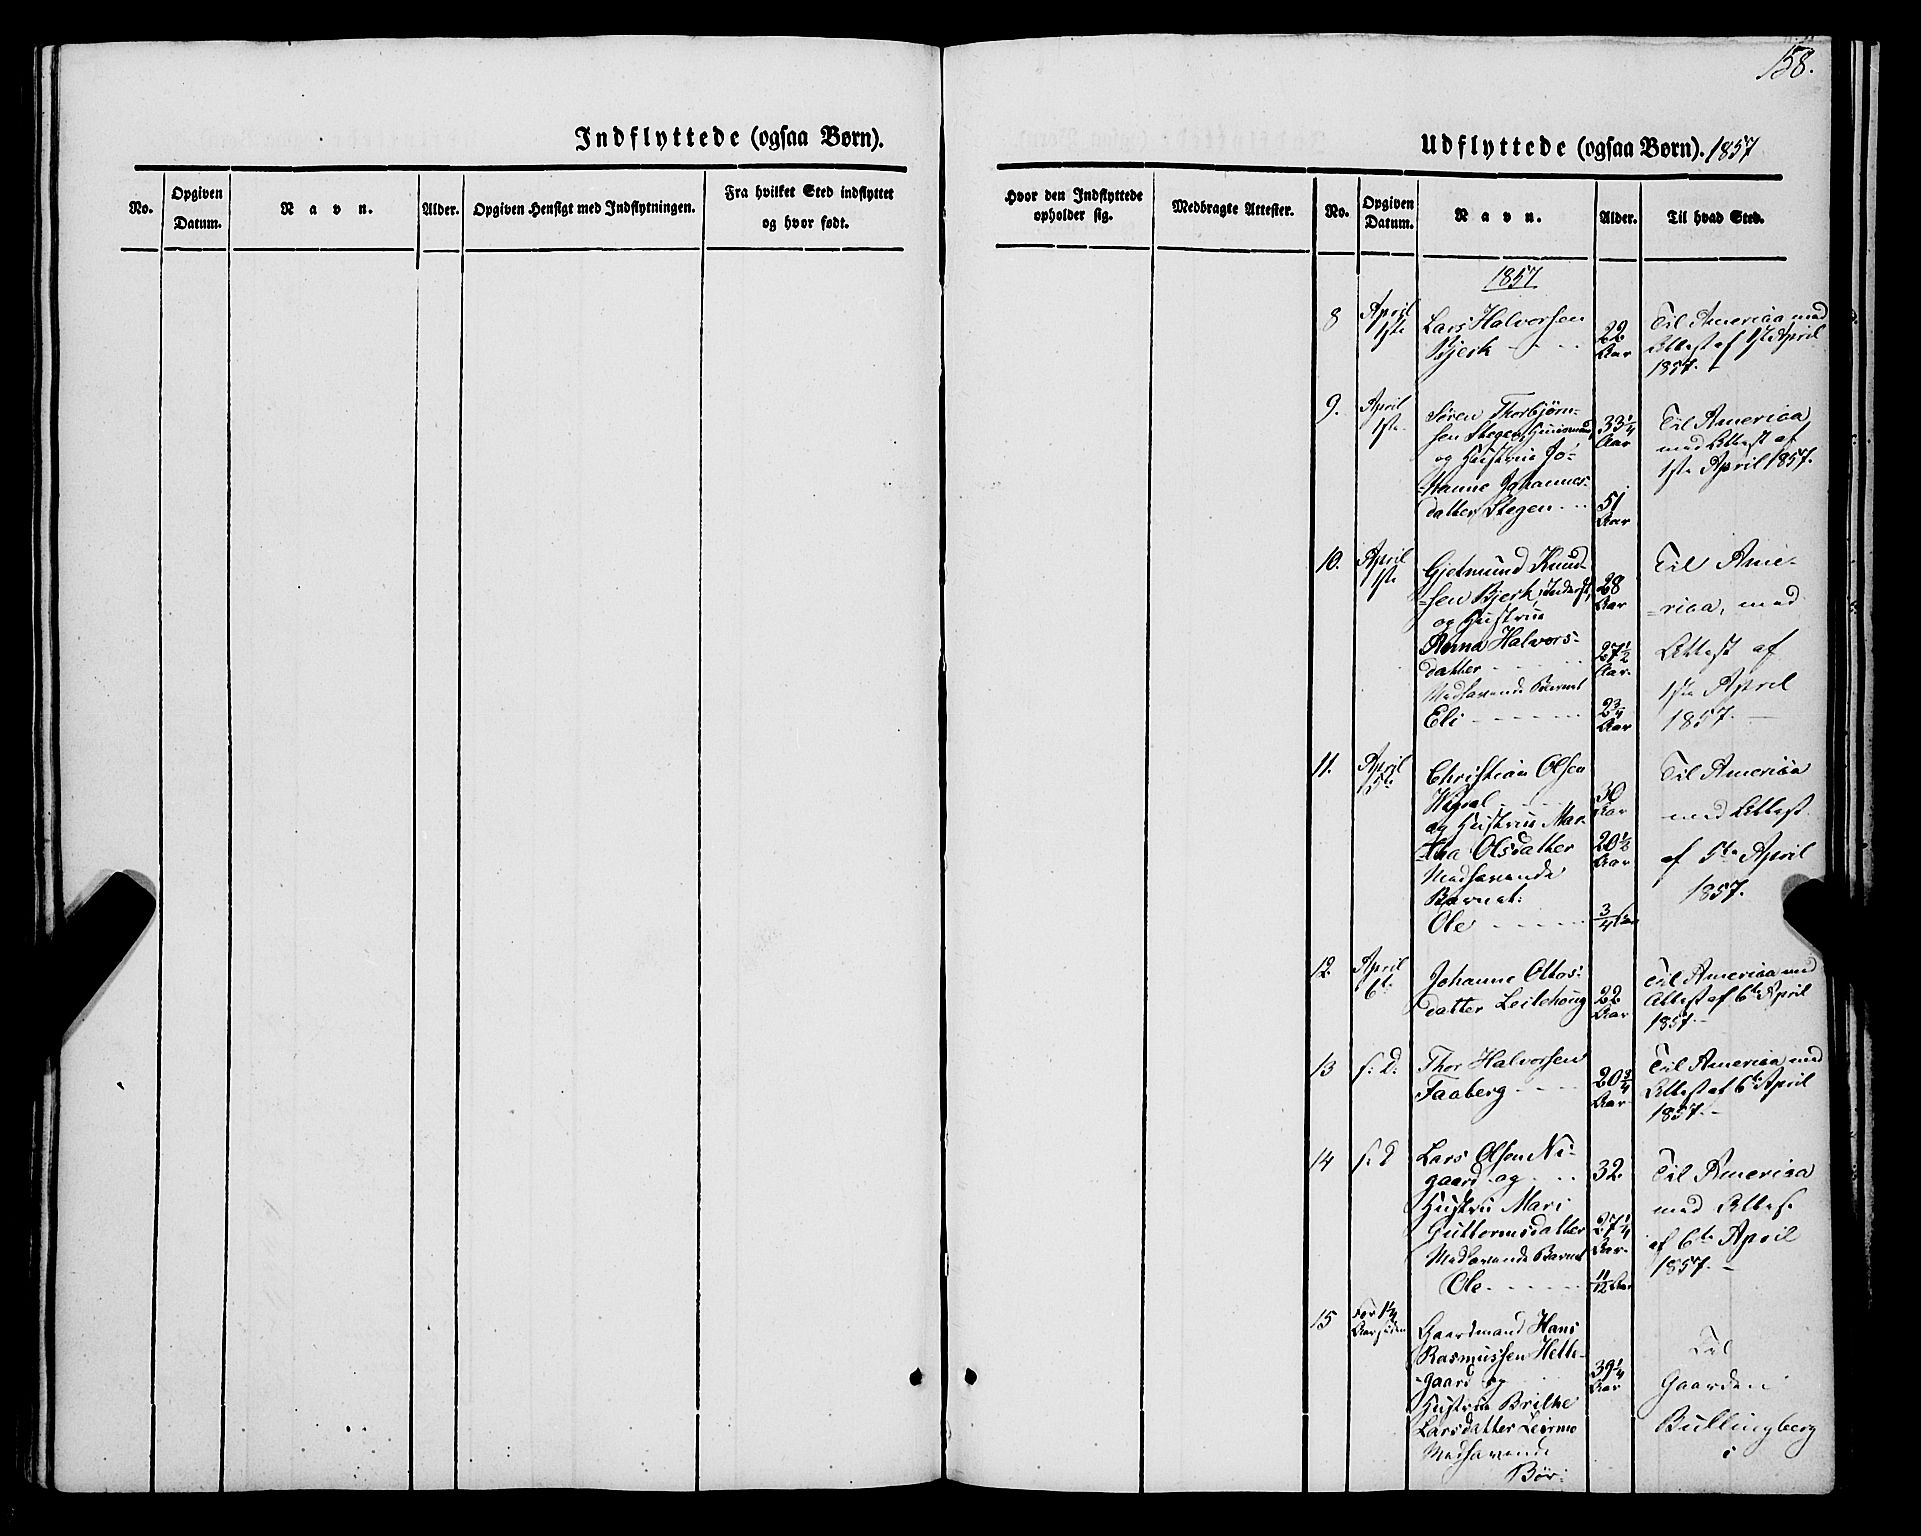 158.
Indflyttede (ogsaa Børn).
No.
Opgiven Datum.
Navn.
Alder.
Opgiven Hensigt med Indflytningen.
Fra hvilket Sted indflyttet
og hvor født.
Udflyttede (ogsaa Børn). 1857
Hvor den Indflyttede
opholder sig.
Medbragte Attester.
No.
Opgiven Datum.
Navn.
Alder.
Til hvad Sted.
1857
8 April 1ste
Lars Halvorsen
Bjerk
22 Aar
Til America med
Attest af 1ste April
1857.
9. April 1ste
Søren Thorbjørn-
sen Stegen, Huusmand,
og Hustrue Jo-
hanne Johannes-
datter Stegen
33 1/4 Aar
51 Aar
Til America
med Attest af
1ste April 1857.
10. April 1ste
Gjetmund Knud-
sen Bjerk, Inderst,
og Hustrue
Anna Halvors-
datter
Medhavende Barnet
Eli
28 Aar
27 1/2 Aar
2 3/4 Aar
Til Ame-
rica, med
Attest af
1ste April
1857.
11. April 5te
Christian Olsen
og Hustrue Mar-
tha Olsdatter
Medhavende
Barnet:
Ole
30 Aar
20 1/2 Aar
3/4 Aar
Til America
med Attest
af 5te April
1857.
12. April 6te
Johanne Ottos-
datter Leilehoug
22 Aar
Til America med
Attest af 6te April
1857.
13 s: D:
Thor Halvorsen
Faaberg
20 3/4 Aar
Til America med
Attest af 6te April
1857.
14 s: D
Lars Olsen Ni-
gaard og
Hustru Mari
Guttormsdatter
Medhavende Barnet
Ole
32.
27 1/4 Aar
11/12 Aar
Til America
med Attest
af 6te April
1857.
15 For 1 1/4 Aar siden
Gaardmand Hans
Rasmussen Helle-
gaard og
Hustrue Brithe
Larsdatter Leirmo
Medhavende
Bør:
39 1/4 Aar
Til
Gaarden
Bullingberg
i